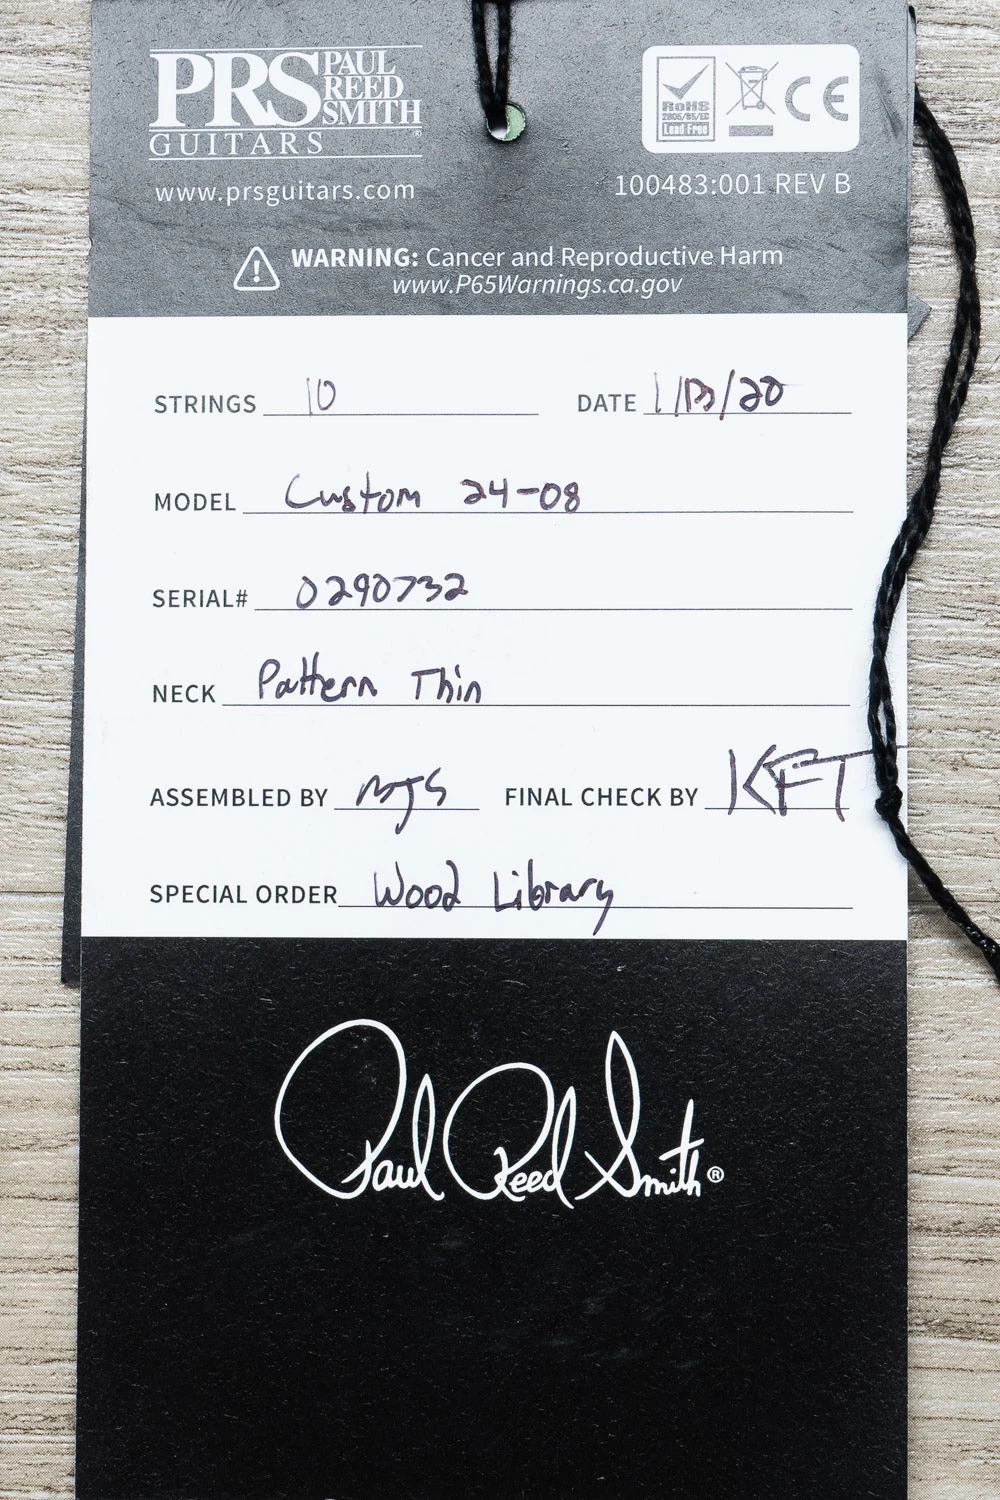 PRS PAUL REED SMITH
GUITARS ®
www.prsguitars.com
RoHS
2005/95/EC
Lead Free
CE
100483:001 REV B
WARNING: Cancer and Reproductive Harm
www.P65Warnings.ca.gov
STRINGS 10 DATE 1/13/20
MODEL Custom 24-08
SERIAL# 0290732
NECK Pattern Thin
ASSEMBLED BY MJS FINAL CHECK BY KFT
SPECIAL ORDER Wood Library
Paul Reed Smith ®